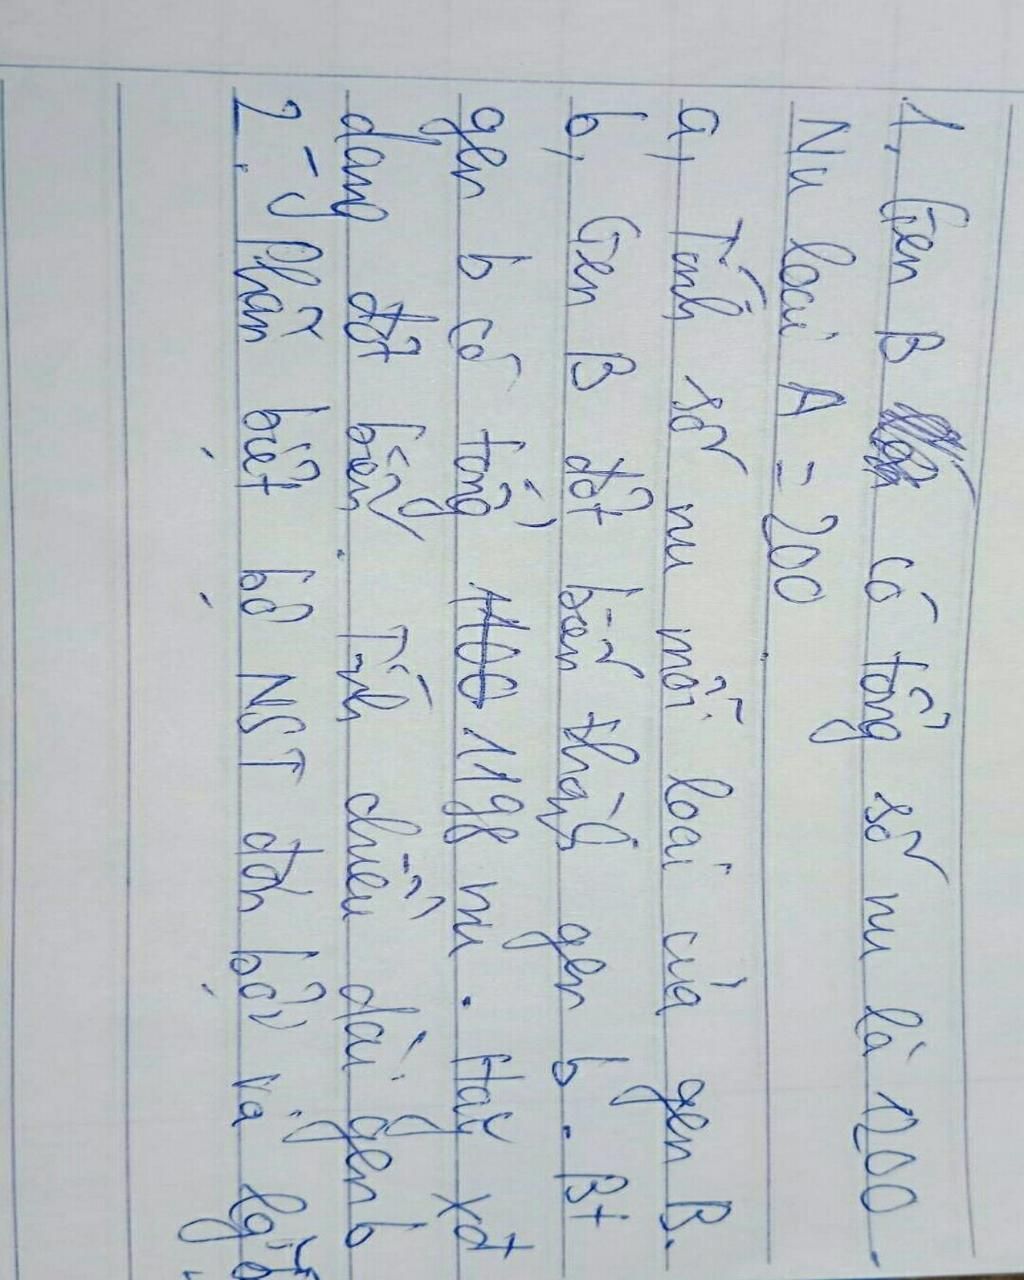 1, Gen B có tổng số nu là 1200.
Nu loại A = 200
a, Tính số nu mỗi loại của gen B.
b, Gen B đột biến thành gen b. Bt
gen b có tổng 1198 nu. Hãy xđ
dạng đột biến. Tính chiều dài gen b
2, Phân biệt bộ NST đơn bội và lg bội